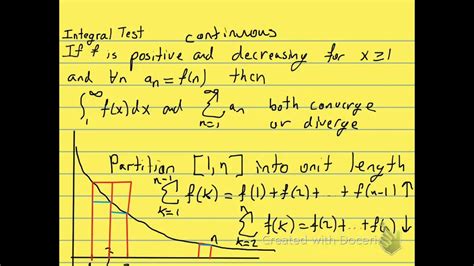 Integral Test continuous
If f is positive and decreasing for x ≥ 1
and ∀n aₙ = f(n) then
∫₁^∞ f(x) dx and ∑_{n=1}^∞ aₙ both converge
or diverge
Partition [1,n] into unit length
∑_{k=1}^{n-1} f(k) = f(1) + f(2) + .. + f(n-1) ↑
∑_{k=2}^{n} f(k) = f(2) + .. + f(n) ↓
n
Created with